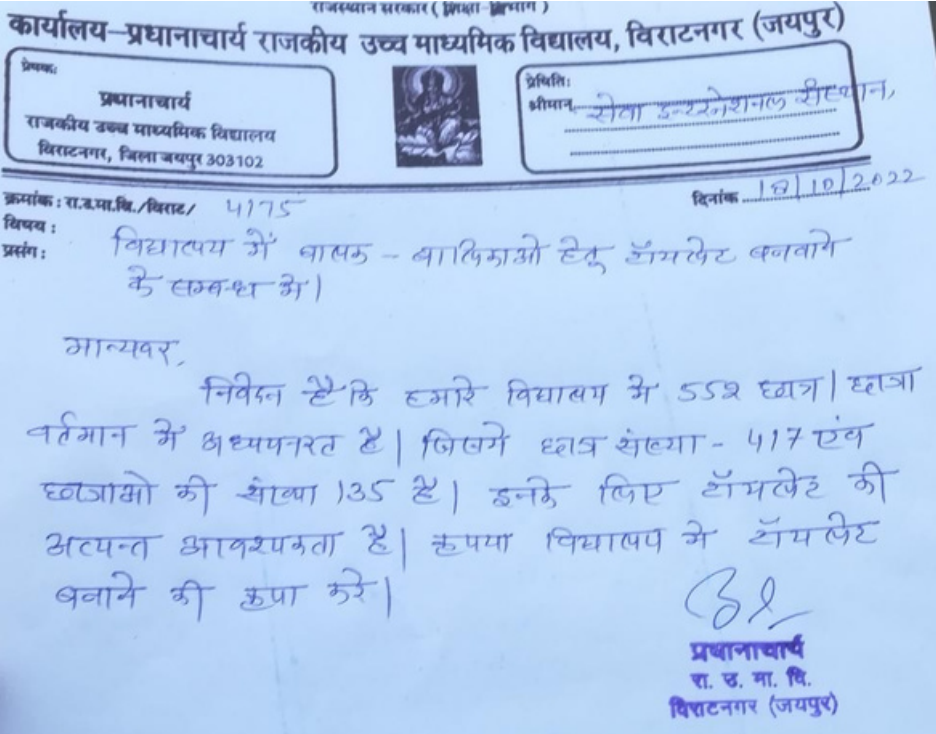 राजस्थान सरकार ( शिक्षा विभाग )
कार्यालय-प्रधानाचार्य राजकीय उच्च माध्यमिक विद्यालय, विराटनगर (जयपुर)
प्रेषकः
प्रधानाचार्य
राजकीय उच्च माध्यमिक विद्यालय
विराटनगर, जिला जयपुर 303102
प्रेषितिः
श्रीमान् सेवा इन्टरनेशनल संस्थान,
क्रमांक : रा.उ.मा.वि./विराट/ 4175
दिनांक 18/10/2022
विषय :
प्रसंग :
विद्यालय में बालक - बालिकाओ हेतू टॉयलेट बनवाने
के सम्बन्ध मे।
मान्यवर,
निवेदन है कि हमारे विद्यालय मे 552 छात्र। छात्रा
वर्तमान मे अध्ययनरत है। जिसमे छात्र संख्या - 417 एंव
छात्राओ की संख्या 135 है। इनके लिए टॉयलेट की
अत्यन्त आवश्यकता है। कृपया विद्यालय मे टॉयलेट
बनाने की कृपा करे।
प्रधानाचार्य
रा. उ. मा. वि.
विराटनगर (जयपुर)